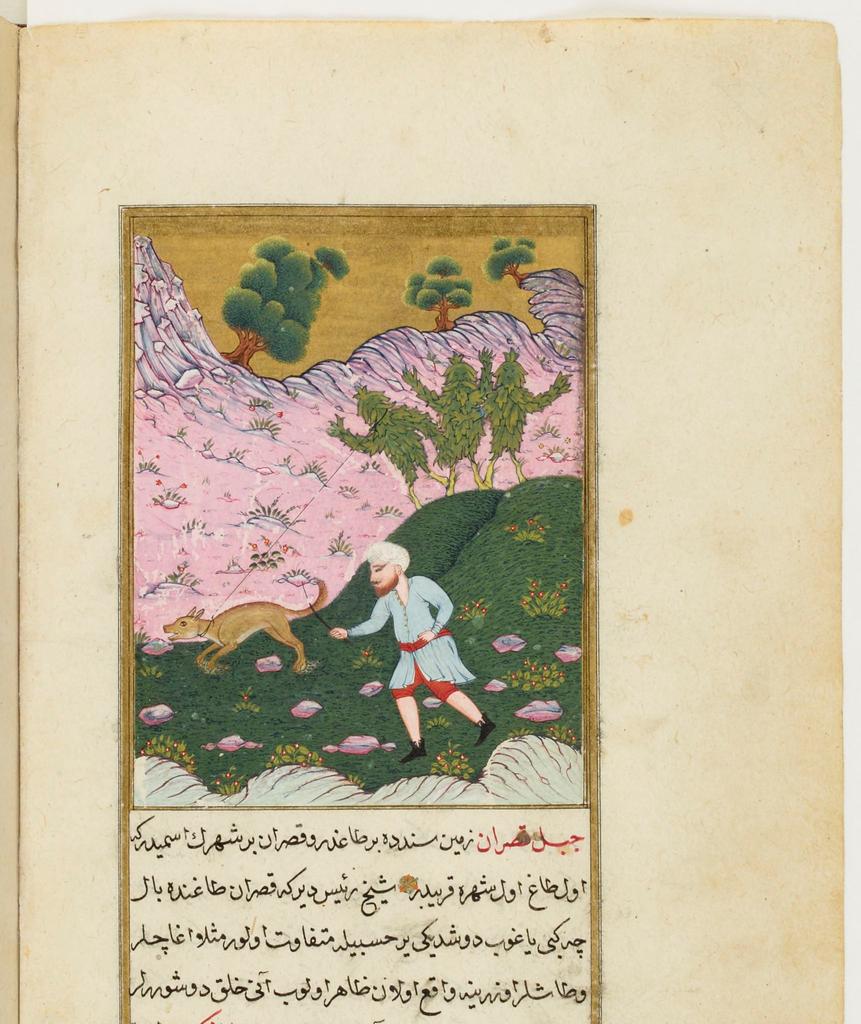 جبل قصران زمین سندده بر طاغدر و قصران بر شهرك اسمیدر كه
اول طاغ اول شهره قریبدر شیخ رئیس دیر كه قصران طاغنده بال
چه كبی یاغوب دوشدیكی یر حسبیله متفاوت اولور مثلا اغاچلر
وطاشلر اوزرینه واقع اولان ظاهر اولوب آنی خلق دوشورر لر